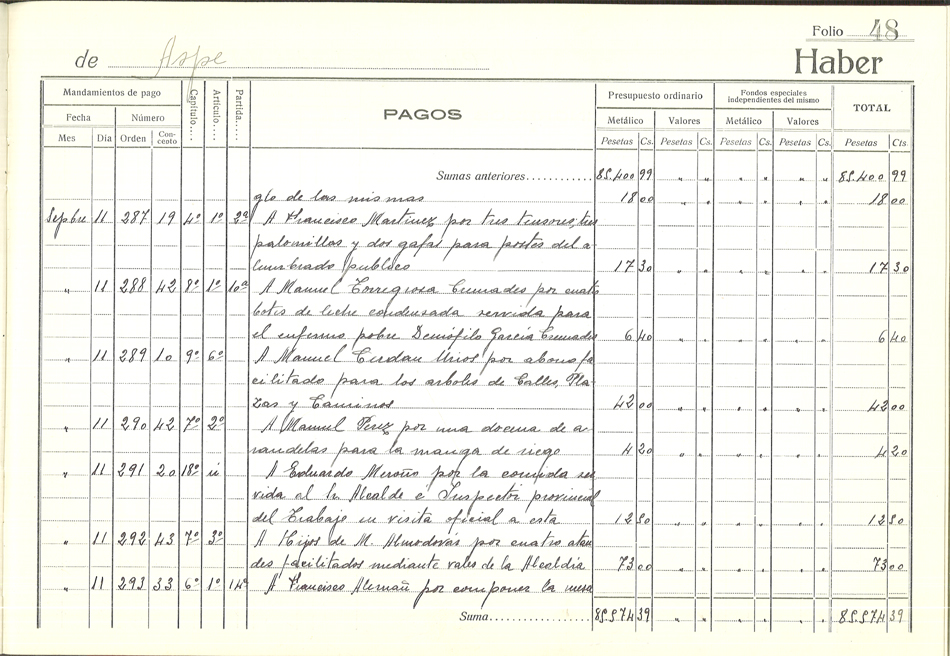 Folio 48
de Aspe Haber
Mandamientos de pago Capítulo.... Artículo.... Partida.... PAGOS Presupuesto ordinario Fondos especiales independientes del mismo TOTAL
Fecha Número Metálico Valores Metálico Valores
Mes Día Orden Concepto Pesetas Cs. Pesetas Cs. Pesetas Cs. Pesetas Cs. Pesetas Cts.
Sumas anteriores............ 85.400 99 " " " " " " 85.400 99
glo de las mismas 18 00 18 00
Sepbre 11 287 19 4º 1º 2ª A Francisco Martinez por tres tensores, tres
palomillas y dos gafas para postes del a
lumbrado publico 17 30 " " " " " " 17 30
" 11 288 42 8º 1º 10ª A Manuel Torregrosa Cremades por cuatro
botes de leche condensada servida para
el enfermo pobre Demófilo García Cremades 6 40 " " " " " " 6 40
" 11 289 10 9º 6º A Manuel Cerdan Urios por abono fa
cilitado para los arboles de Calles, Pla-
zas y Caminos 42 00 " " " " " " 42 00
" 11 290 42 7º 2º A Manuel Perez por una docena de a-
randelas para la manga de riego 4 20 " " " " " " 4 20
" 11 291 20 18º A Eduardo por la comida ser
vida al Sr Alcalde é Inspector provincial
del Trabajo en visita oficial a esta 12 50 " " " " " " 12 50
" 11 292 43 7º 3º A Hijos de M. Almodovár por cuatro atau
des facilitados mediante vales de la Alcaldía 73 00 " " " " " " 73 00
" 11 293 33 6º 1º 14ª A Francisco Alemañ por componer la mesa
Suma.................. 85.574 39 " " " " " " 85.574 39